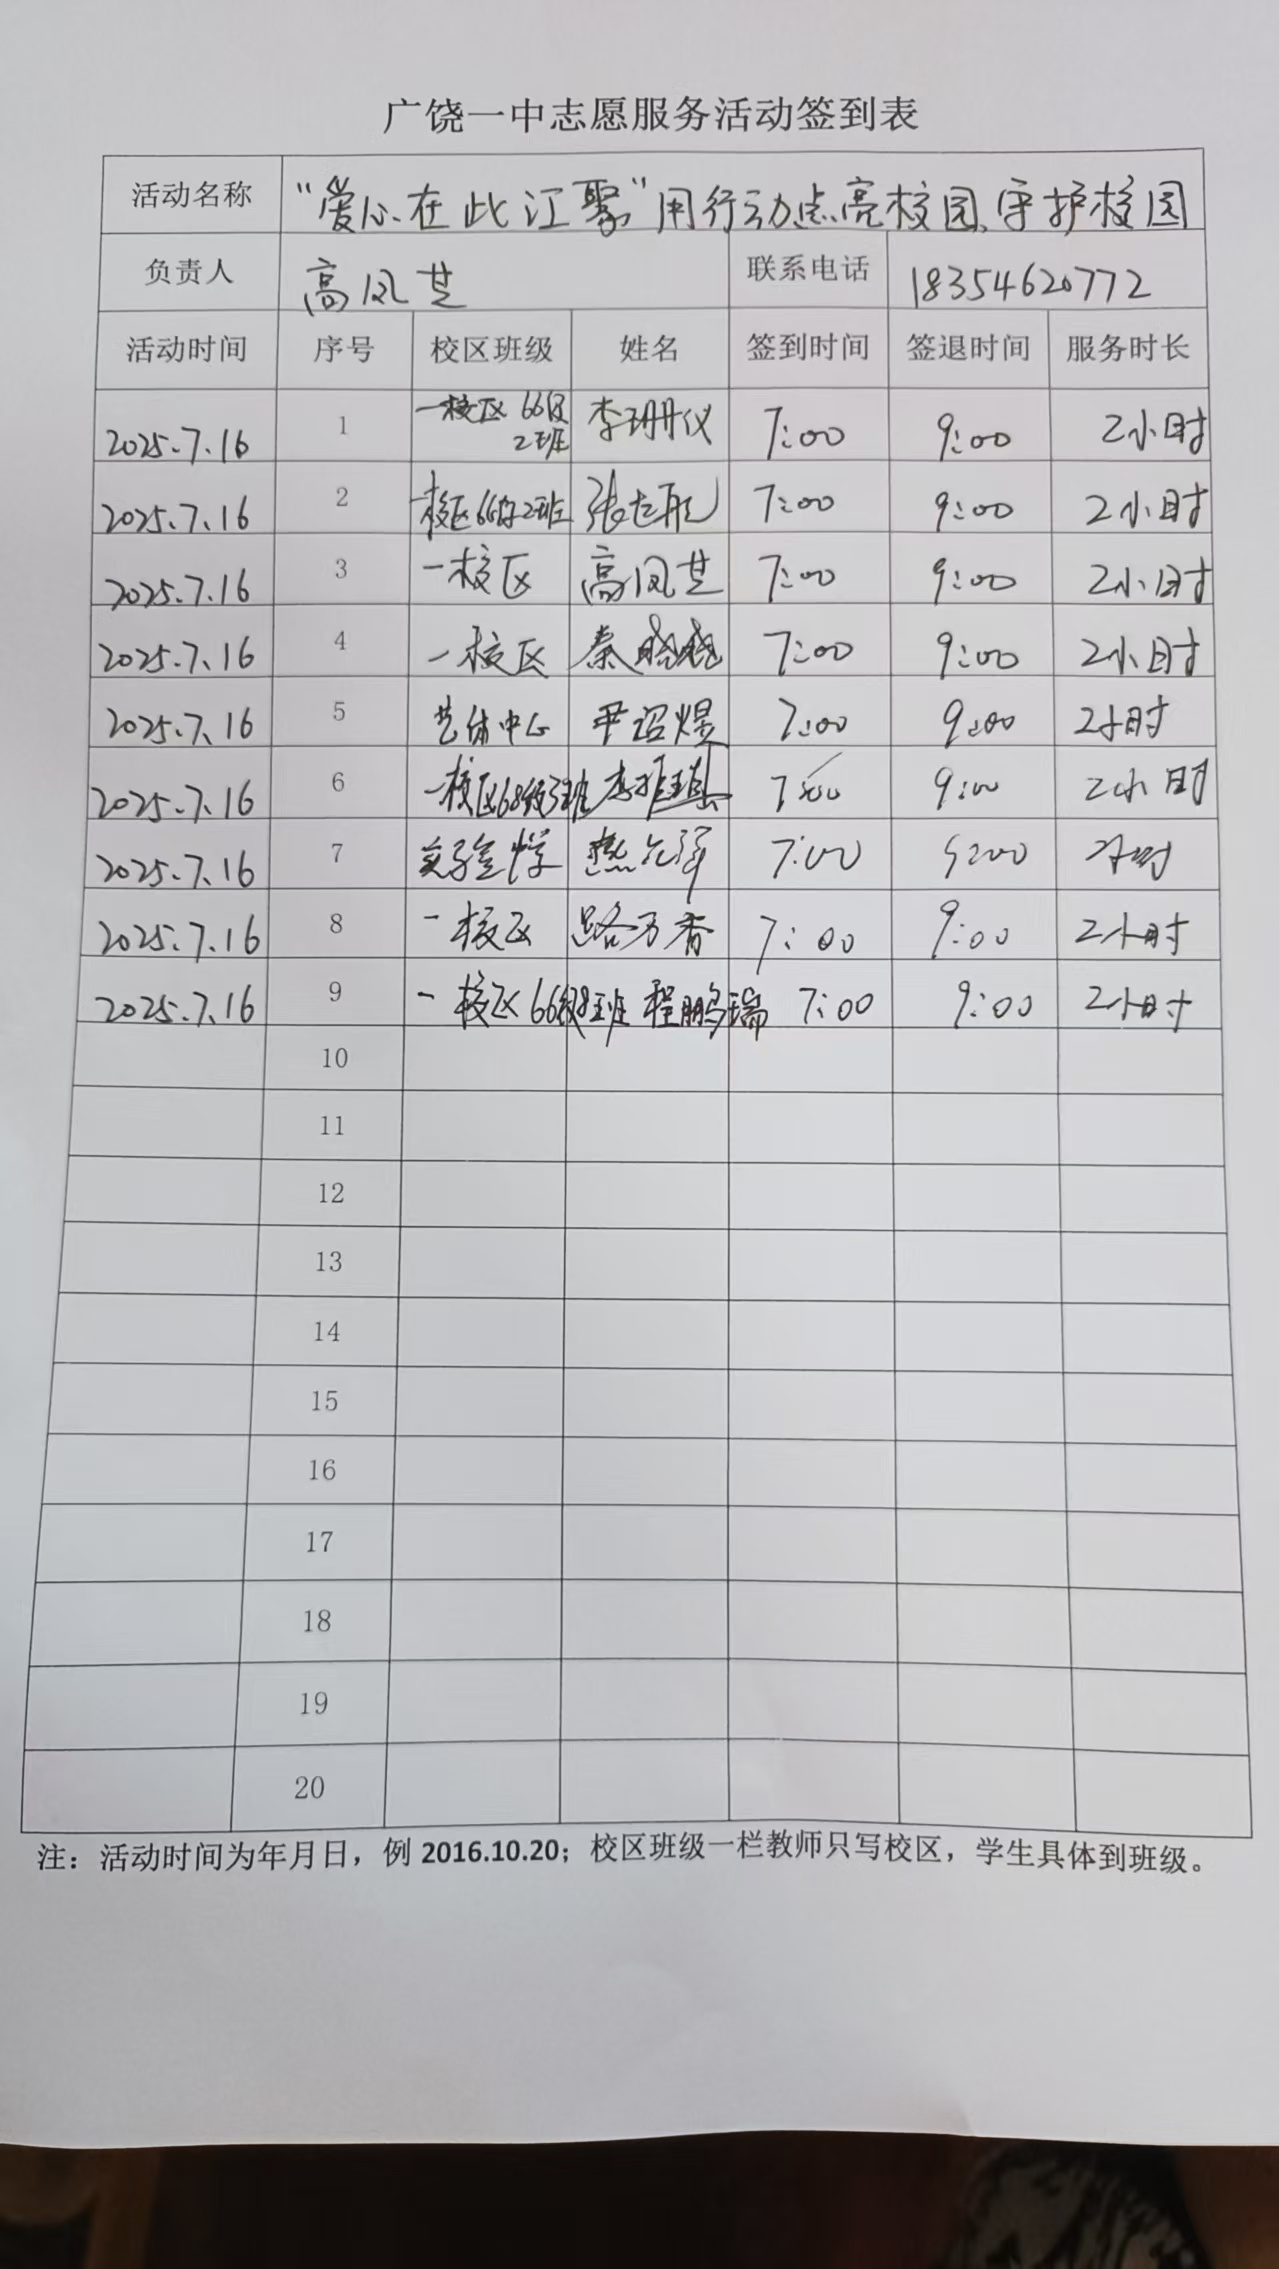 广饶一中志愿服务活动签到表
活动名称 “爱心在此汇聚”用行动点亮校园、守护校园
负责人 高凤芝 联系电话 18354620772
活动时间 序号 校区班级 姓名 签到时间 签退时间 服务时长
2025.7.16 1 一校区 66级2班 李珊仪 7:00 9:00 2小时
2025.7.16 2 一校区66级2班 张志航 7:00 9:00 2小时
2025.7.16 3 一校区 高凤芝 7:00 9:00 2小时
2025.7.16 4 一校区 秦晓晓 7:00 9:00 2小时
2025.7.16 5 艺体中心 尹诏煜 7:00 9:00 2小时
2025.7.16 6 一校区68级3班 李 7:00 9:00 2小时
2025.7.16 7 实验中学 7:00 9:00 2小时
2025.7.16 8 一校区 路万香 7:00 9:00 2小时
2025.7.16 9 一校区66级8班 程鹏瑞 7:00 9:00 2小时
10
11
12
13
14
15
16
17
18
19
20
注：活动时间为年月日，例 2016.10.20；校区班级一栏教师只写校区，学生具体到班级。